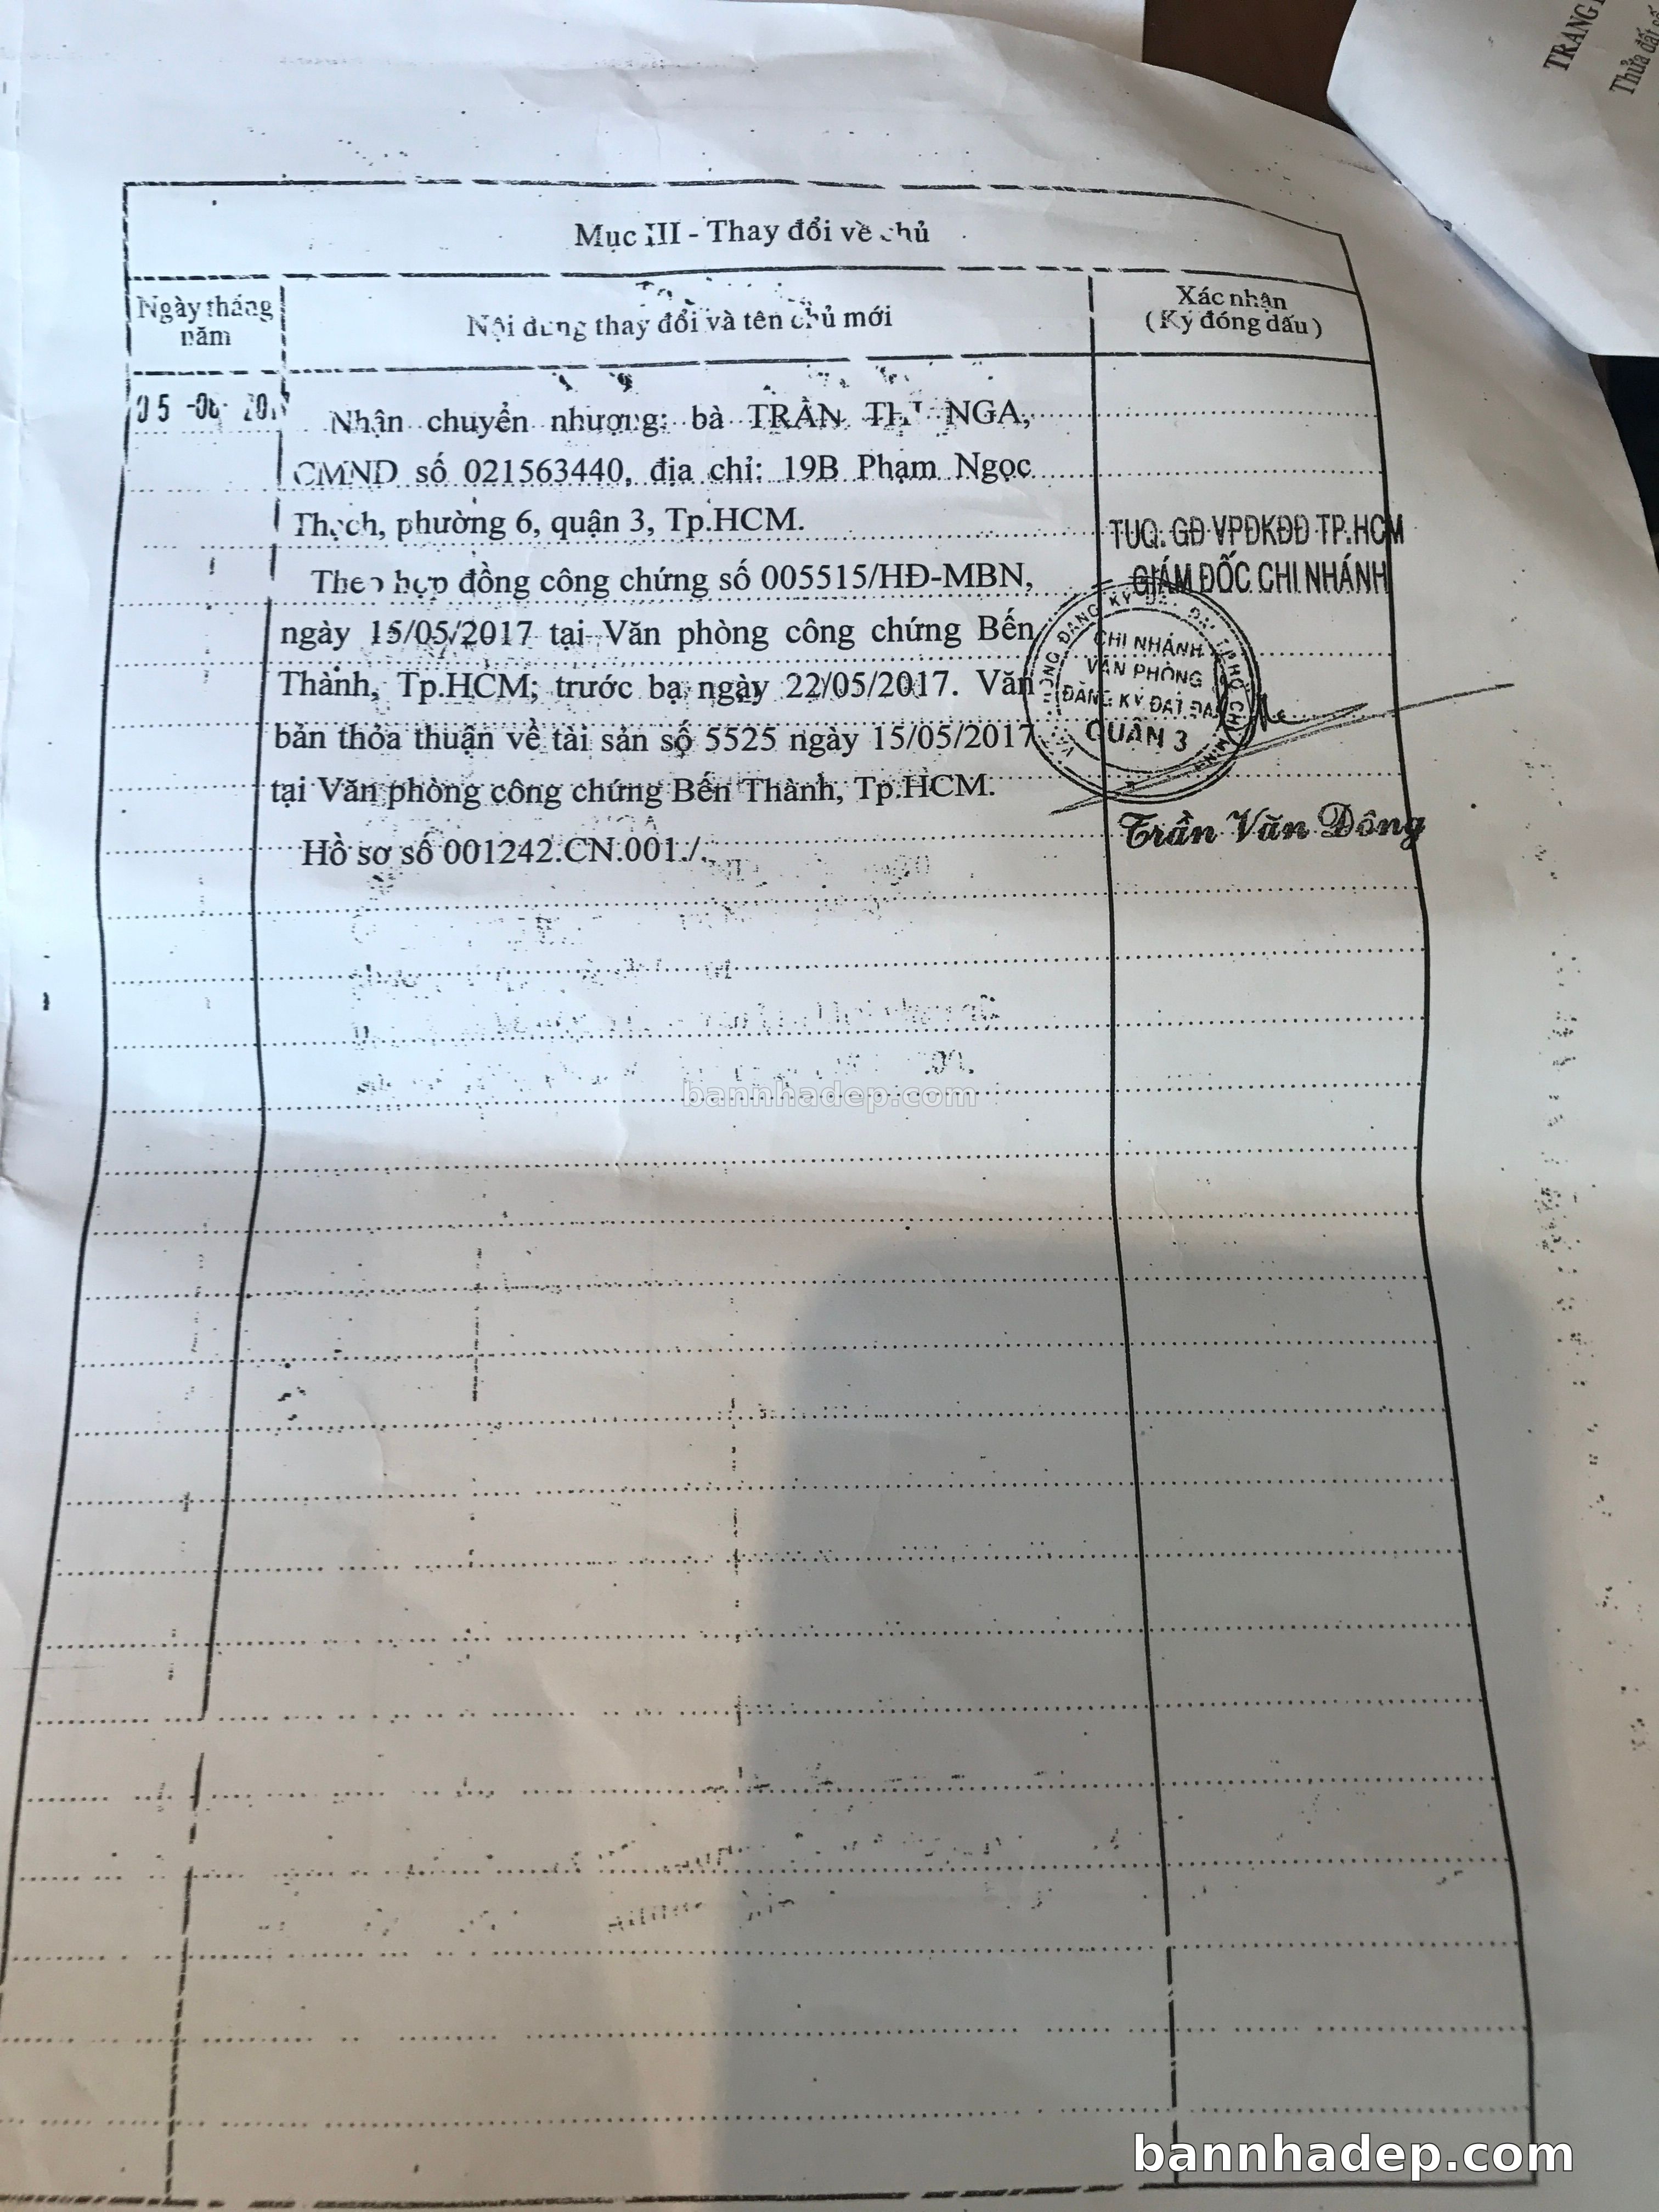 TRANG
Thửa đất số
Mục III - Thay đổi về chủ
Ngày tháng năm
Nội dung thay đổi và tên chủ mới
Xác nhận
(Ký đóng dấu)
05 -06-
Nhận chuyển nhượng: bà TRẦN THỊ NGA,
CMND số 021563440, địa chỉ: 19B Phạm Ngọc
Thạch, phường 6, quận 3, Tp.HCM.
Theo hợp đồng công chứng số 005515/HĐ-MBN,
ngày 15/05/2017 tại Văn phòng công chứng Bến
Thành, Tp.HCM; trước bạ ngày 22/05/2017. Văn
bản thỏa thuận về tài sản số 5525 ngày 15/05/2017
tại Văn phòng công chứng Bến Thành, Tp.HCM.
Hồ sơ số 001242.CN.001./.
TUQ. GĐ VPĐKĐĐ TP.HCM
GIÁM ĐỐC CHI NHÁNH
CHI NHÁNH
VĂN PHÒNG
ĐĂNG KÝ ĐẤT ĐAI
QUẬN 3
Trần Văn Đông
bannhadep.com
bannhadep.com